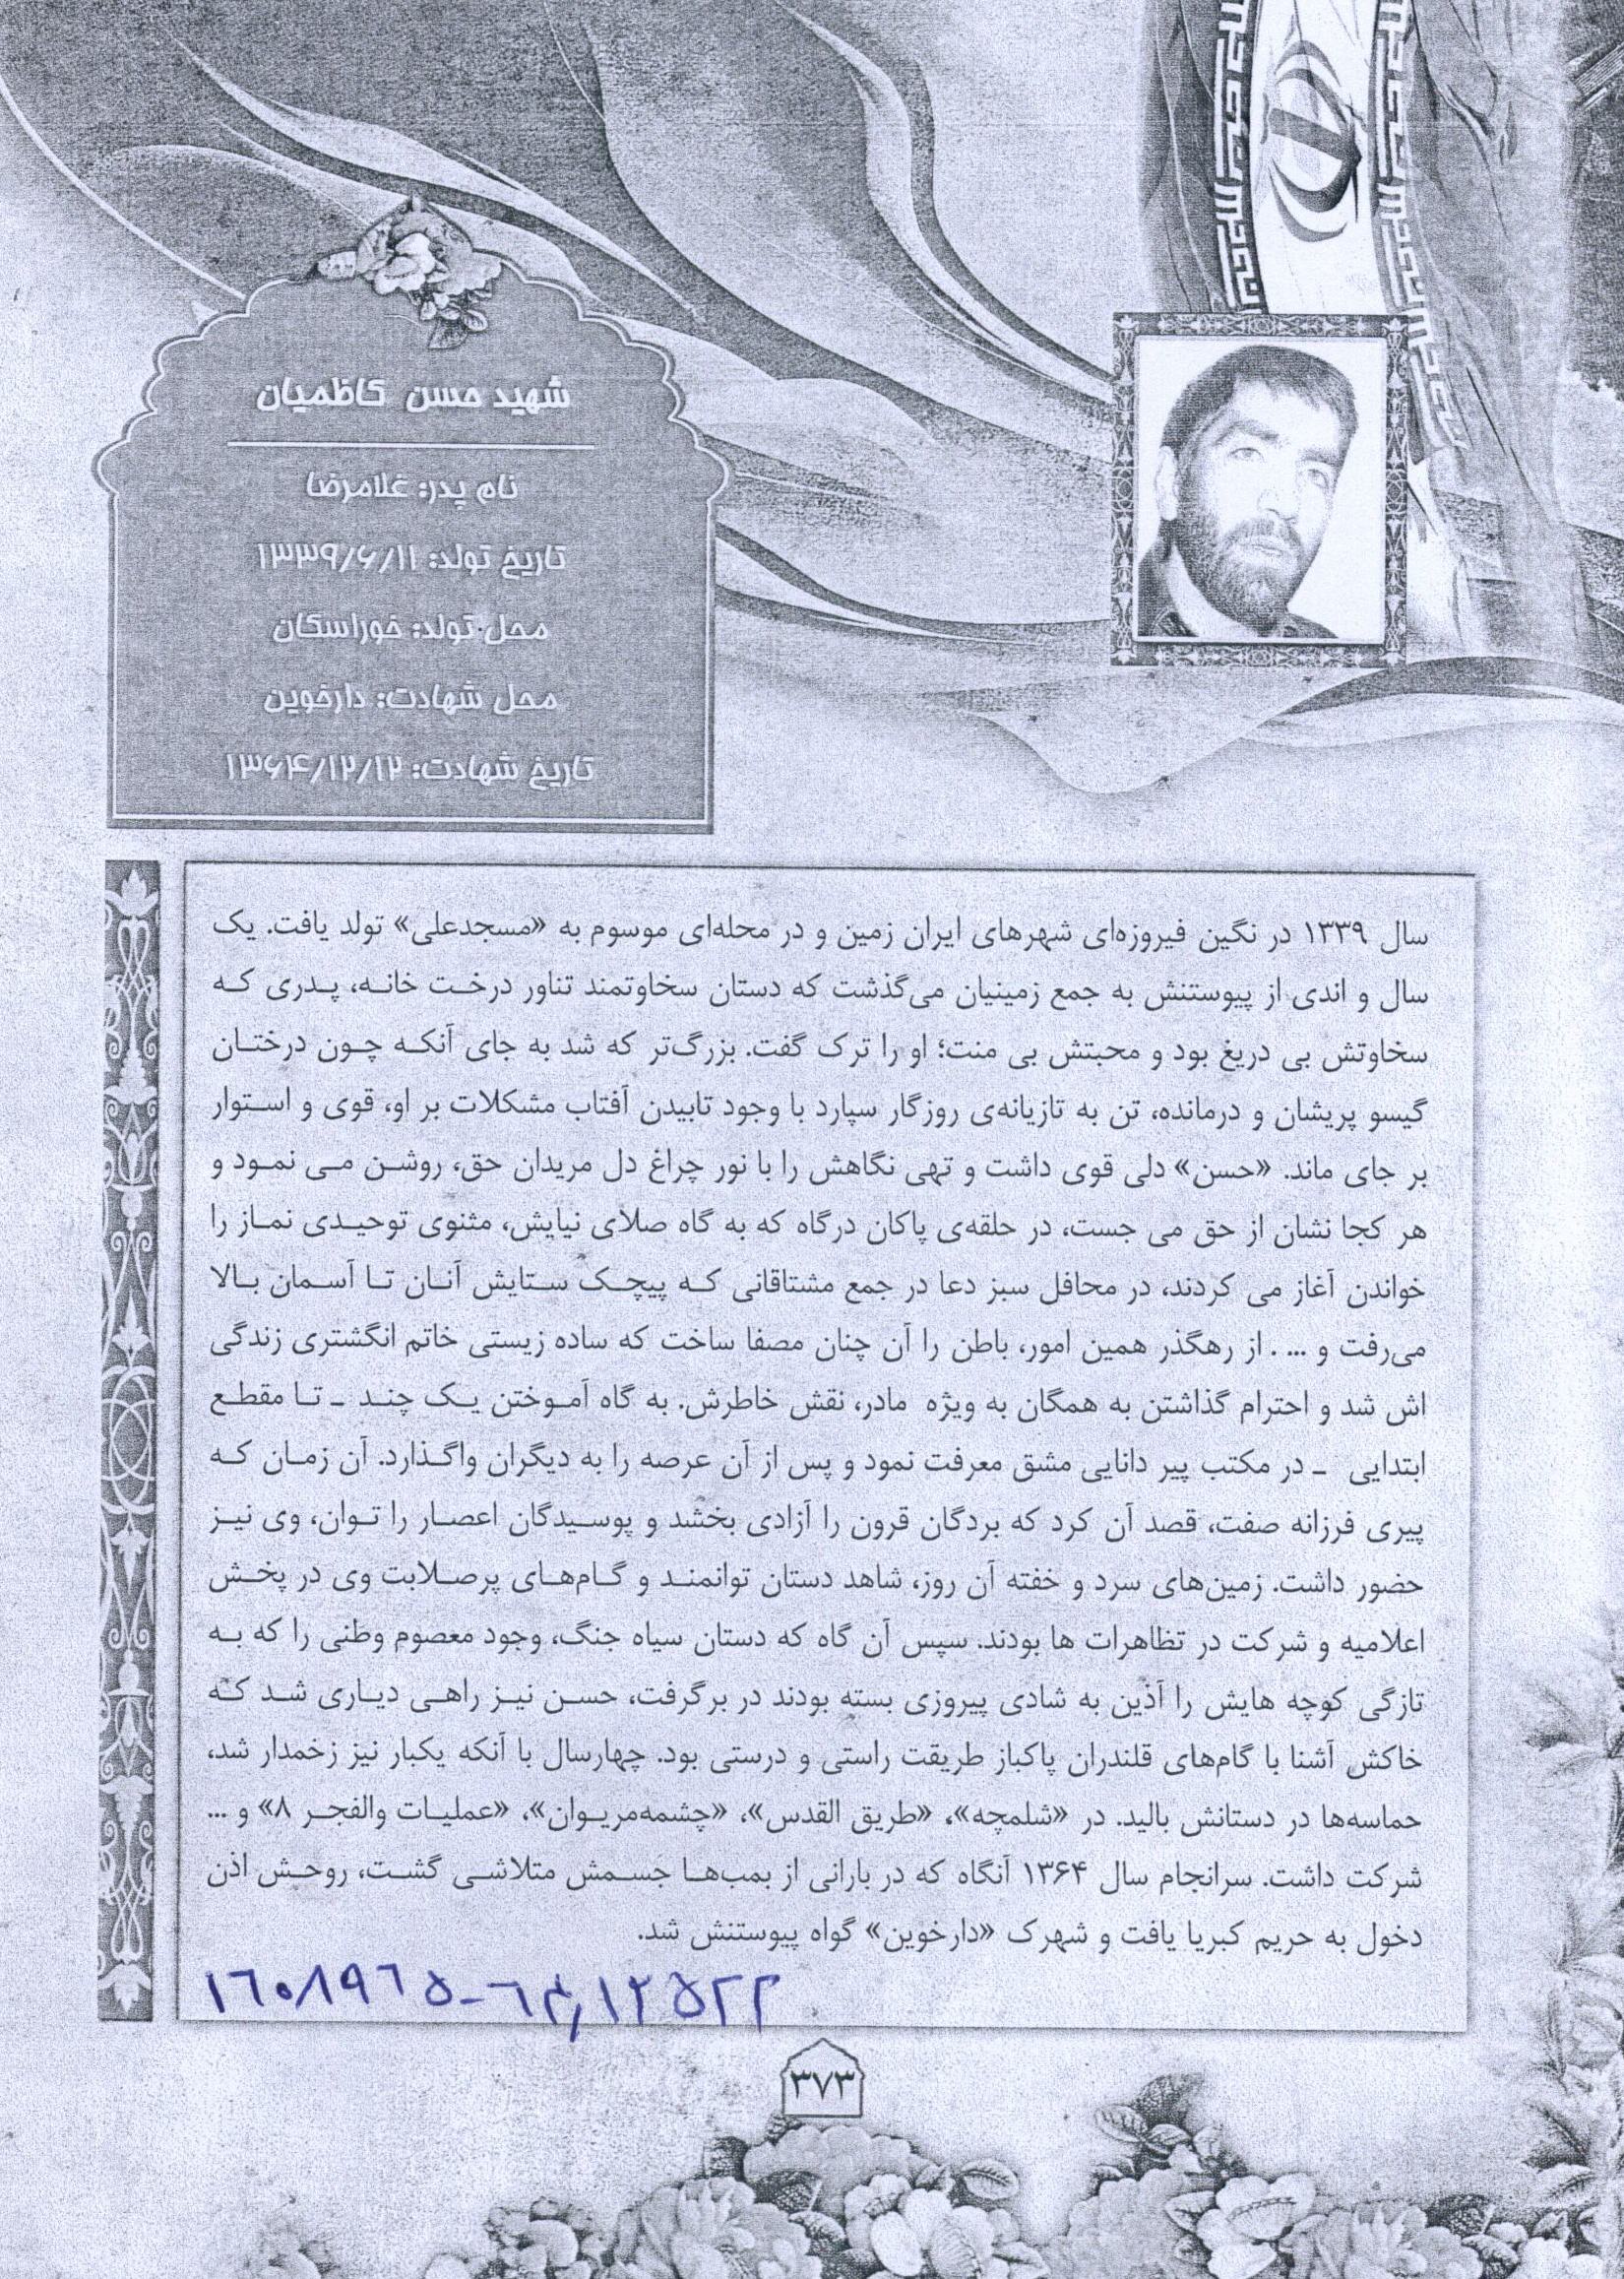 شهید حسن کاظمیان
نام پدر: غلامرضا
تاریخ تولد: ۱۳۳۹/۶/۱۱
محل تولد: خوراسگان
محل شهادت: دارخوین
تاریخ شهادت: ۱۳۶۴/۱۲/۱۲
سال ۱۳۳۹ در نگین فیروزه‌ای شهرهای ایران زمین و در محله‌ای موسوم به «مسجدعلی» تولد یافت. یک
سال و اندی از پیوستنش به جمع زمینیان می‌گذشت که دستان سخاوتمند تناور درخت خانه، پدری که
سخاوتش بی دریغ بود و محبتش بی منت؛ او را ترک گفت. بزرگ‌تر که شد به جای آنکه چون درختان
گیسو پریشان و درمانده، تن به تازیانه‌ی روزگار سپارد با وجود تابیدن آفتاب مشکلات بر او، قوی و استوار
بر جای ماند. «حسن» دلی قوی داشت و تهی نگاهش را با نور چراغ دل مریدان حق، روشن می نمود و
هر کجا نشان از حق می جست، در حلقه‌ی پاکان درگاه که به گاه صلای نیایش، مثنوی توحیدی نماز را
خواندن آغاز می کردند، در محافل سبز دعا در جمع مشتاقانی که پیچک ستایش آنان تا آسمان بالا
می‌رفت و ... . از رهگذر همین امور، باطن را آن چنان مصفا ساخت که ساده زیستی خاتم انگشتری زندگی
اش شد و احترام گذاشتن به همگان به ویژه مادر، نقش خاطرش. به گاه آموختن یک چند ـ تا مقطع
ابتدایی ـ در مکتب پیر دانایی مشق معرفت نمود و پس از آن عرصه را به دیگران واگذارد. آن زمان که
پیری فرزانه صفت، قصد آن کرد که بردگان قرون را آزادی بخشد و پوسیدگان اعصار را توان، وی نیز
حضور داشت. زمین‌های سرد و خفته آن روز، شاهد دستان توانمند و گام‌های پرصلابت وی در پخش
اعلامیه و شرکت در تظاهرات ها بودند. سپس آن گاه که دستان سیاه جنگ، وجود معصوم وطنی را که به
تازگی کوچه هایش را آذین به شادی پیروزی بسته بودند در برگرفت، حسن نیز راهی دیاری شد که
خاکش آشنا با گام‌های قلندران پاکباز طریقت راستی و درستی بود. چهارسال با آنکه یکبار نیز زخمدار شد،
حماسه‌ها در دستانش بالید. در «شلمچه»، «طریق القدس»، «چشمه‌مریوان»، «عملیات والفجر ۸» و ...
شرکت داشت. سرانجام سال ۱۳۶۴ آنگاه که در بارانی از بمب‌ها جسمش متلاشی گشت، روحش اذن
دخول به حریم کبریا یافت و شهرک «دارخوین» گواه پیوستنش شد.
۱۶۰۸۹۶۵-۶۴،۱۲۵۲۲
۳۷۳